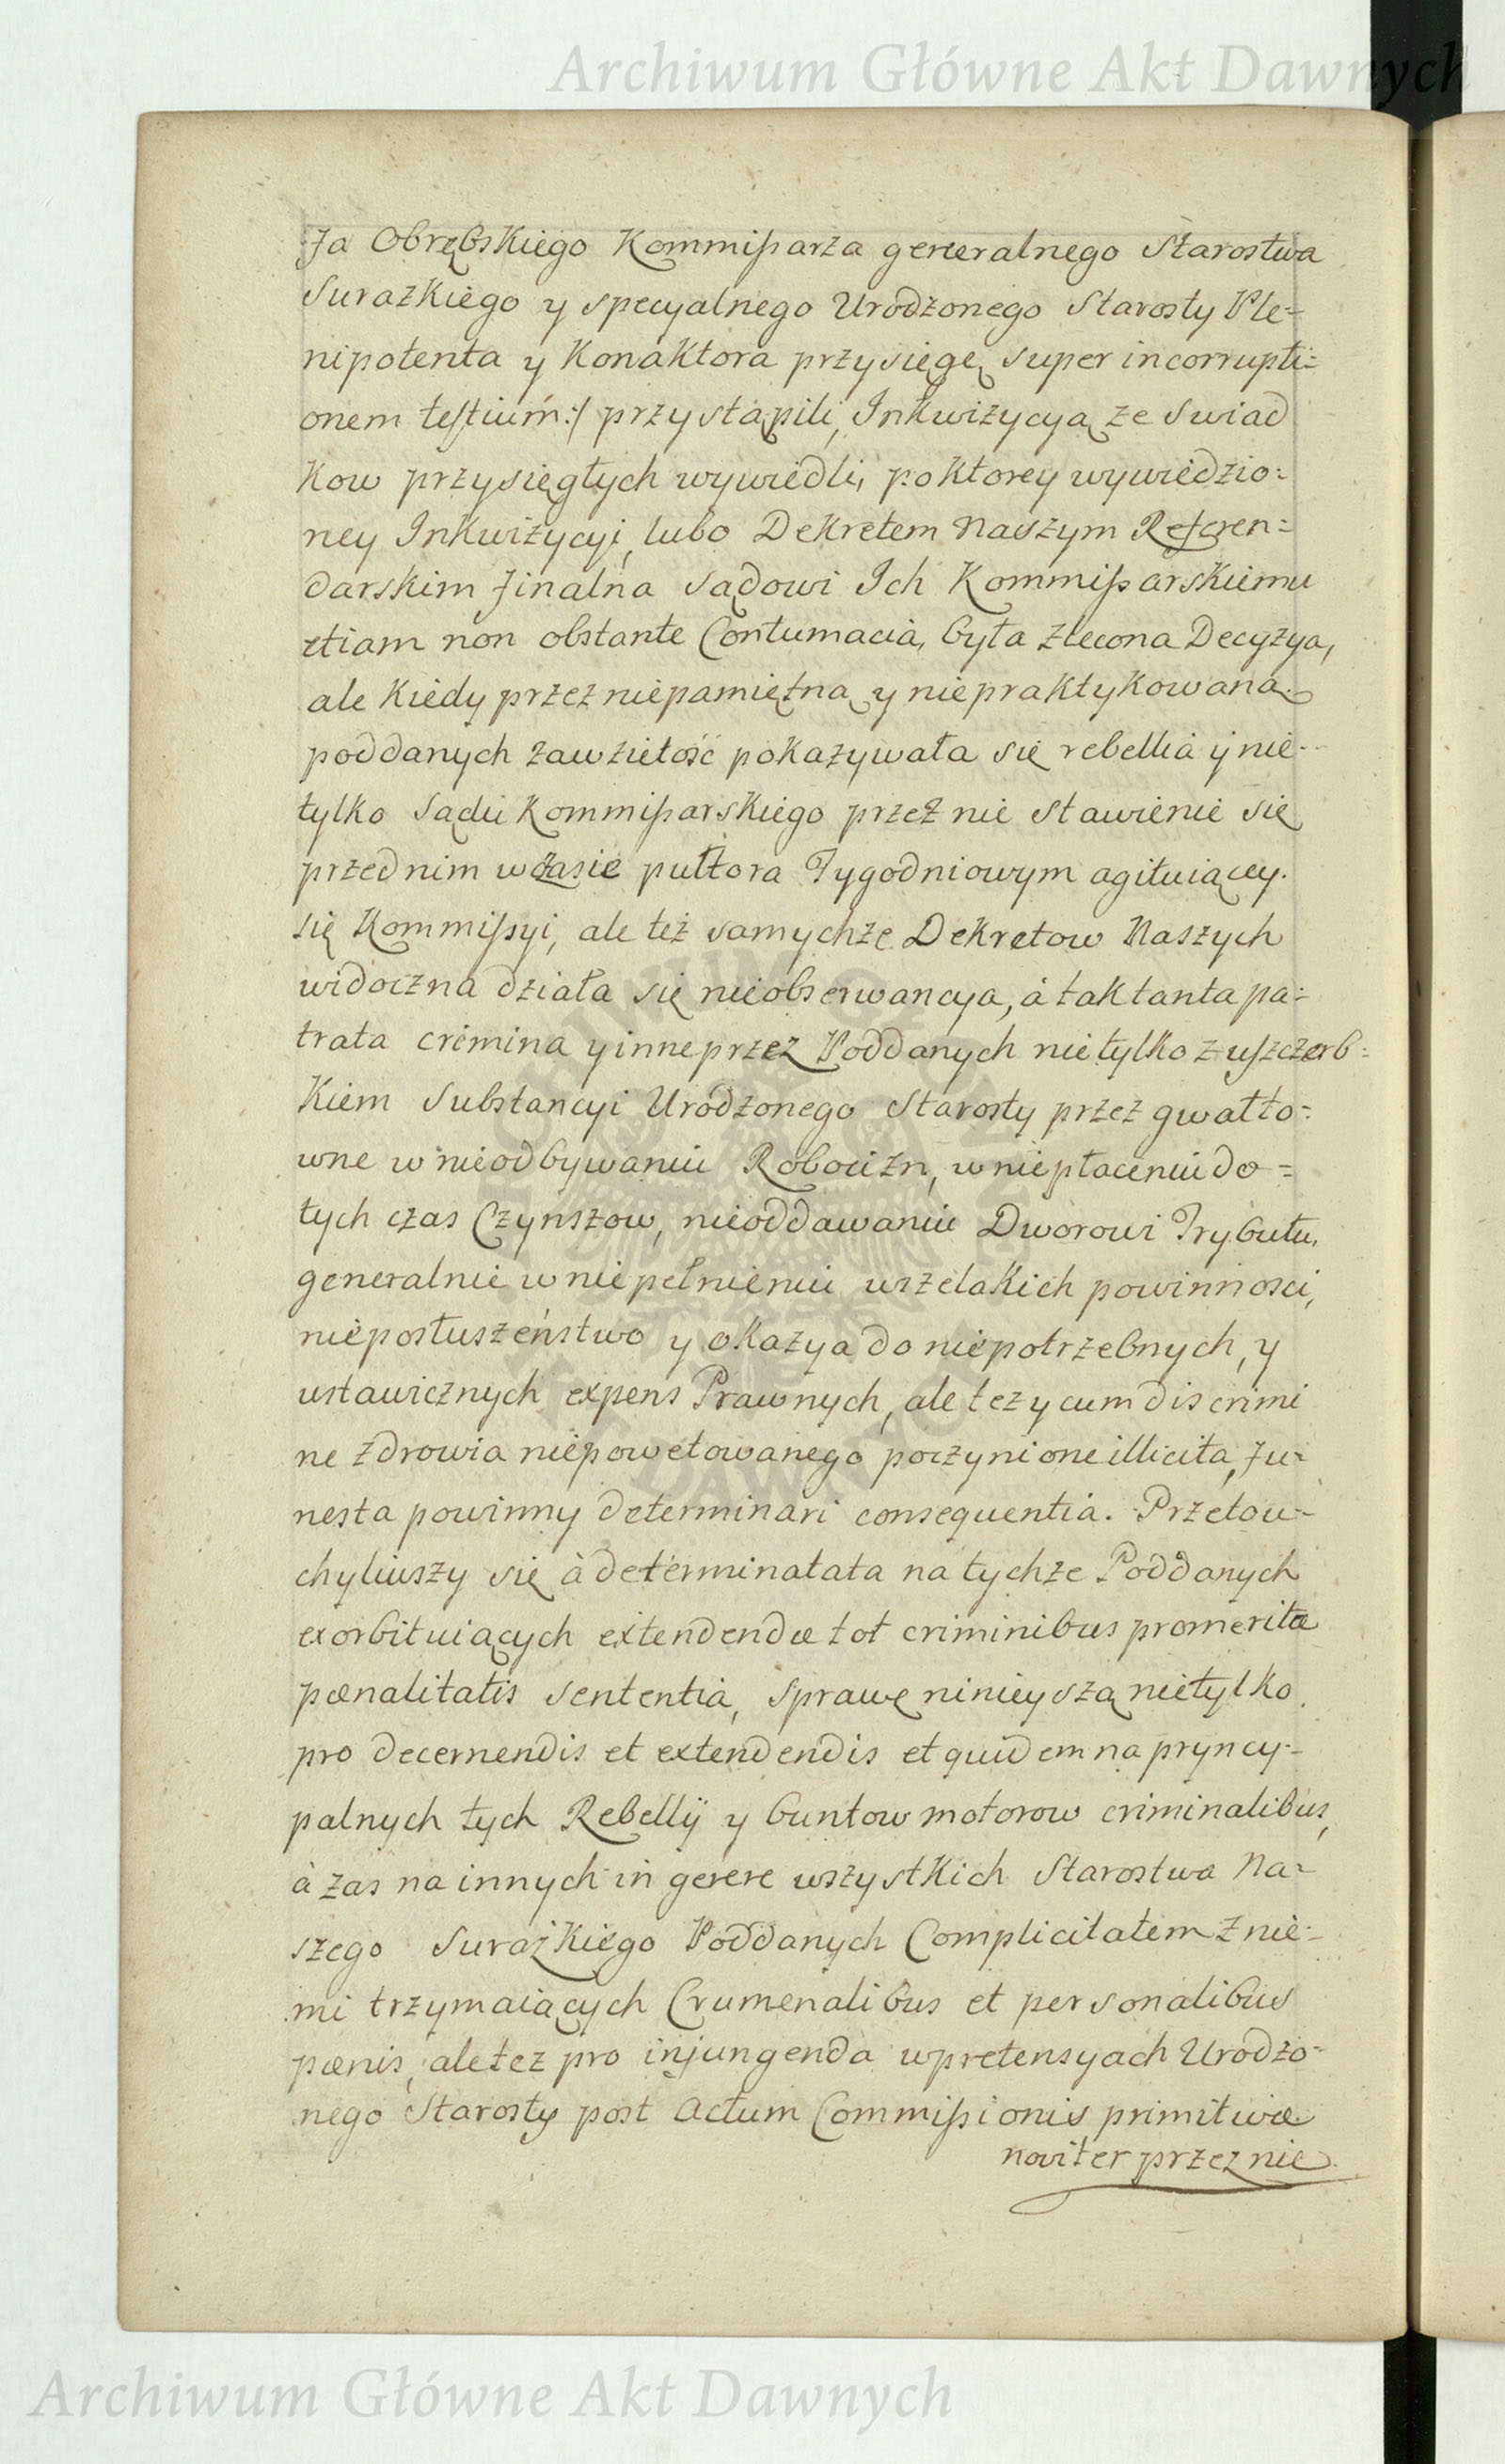 Archiwum Główne Akt Dawnych
fa Obrębskiego Kommissarza generalnego Starostwa
Surazkiego y specyalnego Urodzonego Starosty Ple=
nipotenta y Konaktora przysięgę super incorrupti=
onem testium:/ przystąpili, Inkwizycyą ze Swiad
kow przysięgłych wywiedli, po ktorey wywiedzio=
ney Inkwizycyi, lubo Dekretem Naszym Referen=
darskim finalna Sądowi Ich Kommissarskiemu
etiam non obstante Contumacia, była zlecona Decyzya,
ale kiedy przez niepamiętną y niepraktykowaną
poddanych zawziętość pokazywała się rebellia y nie=
tylko Sądu Kommissarskiego przez nie stawienie się
przed nim w czasie pułtora Tygodniowym agituiącey
się Kommissyi, ale też samychże Dekretow Naszych
widoczna działa się nieobserwancya, á tak tanta pa=
trata crimina y inne przez Poddanych nietylko z uszczerb=
kiem Substancyi Urodzonego Starosty przez gwałto=
wne w nieodbywaniu Robocizn, w niepłaceniu do=
tych czas Czynszow, nieoddawaniu Dworowi Trybutu,
generalnie w niepełnieniu wszelakich powinnosci,
nieposłuszeństwo y okazya do niepotrzebnych, y
ustawicznych expens Prawnych, ale tez y cum discrimi
ne zdrowia niepowetowanego poczynione illicita, fu=
nesta powinny determinari consequentia. Przeto u=
chyliwszy się à determinatata na tychże Poddanych
exorbituiących extendendæ tot criminibus promeritæ
pænalitatis sententia, sprawę ninieyszą nietylko
pro decernendis et extendendis et quidem na pryncy=
palnych tych Rebellij y buntow motorow criminalibus,
à zas na innych in genere wszystkich Starostwa Na=
szego Surazkiego Poddanych Complicitatem z nie=
mi trzymaiących Crumenalibus et personalibus
pænis, ale tez pro injungenda w pretensyach Urodzo=
nego Starosty post Actum Commissionis primitivæ
noviter przez nie
Archiwum Główne Akt Dawnych